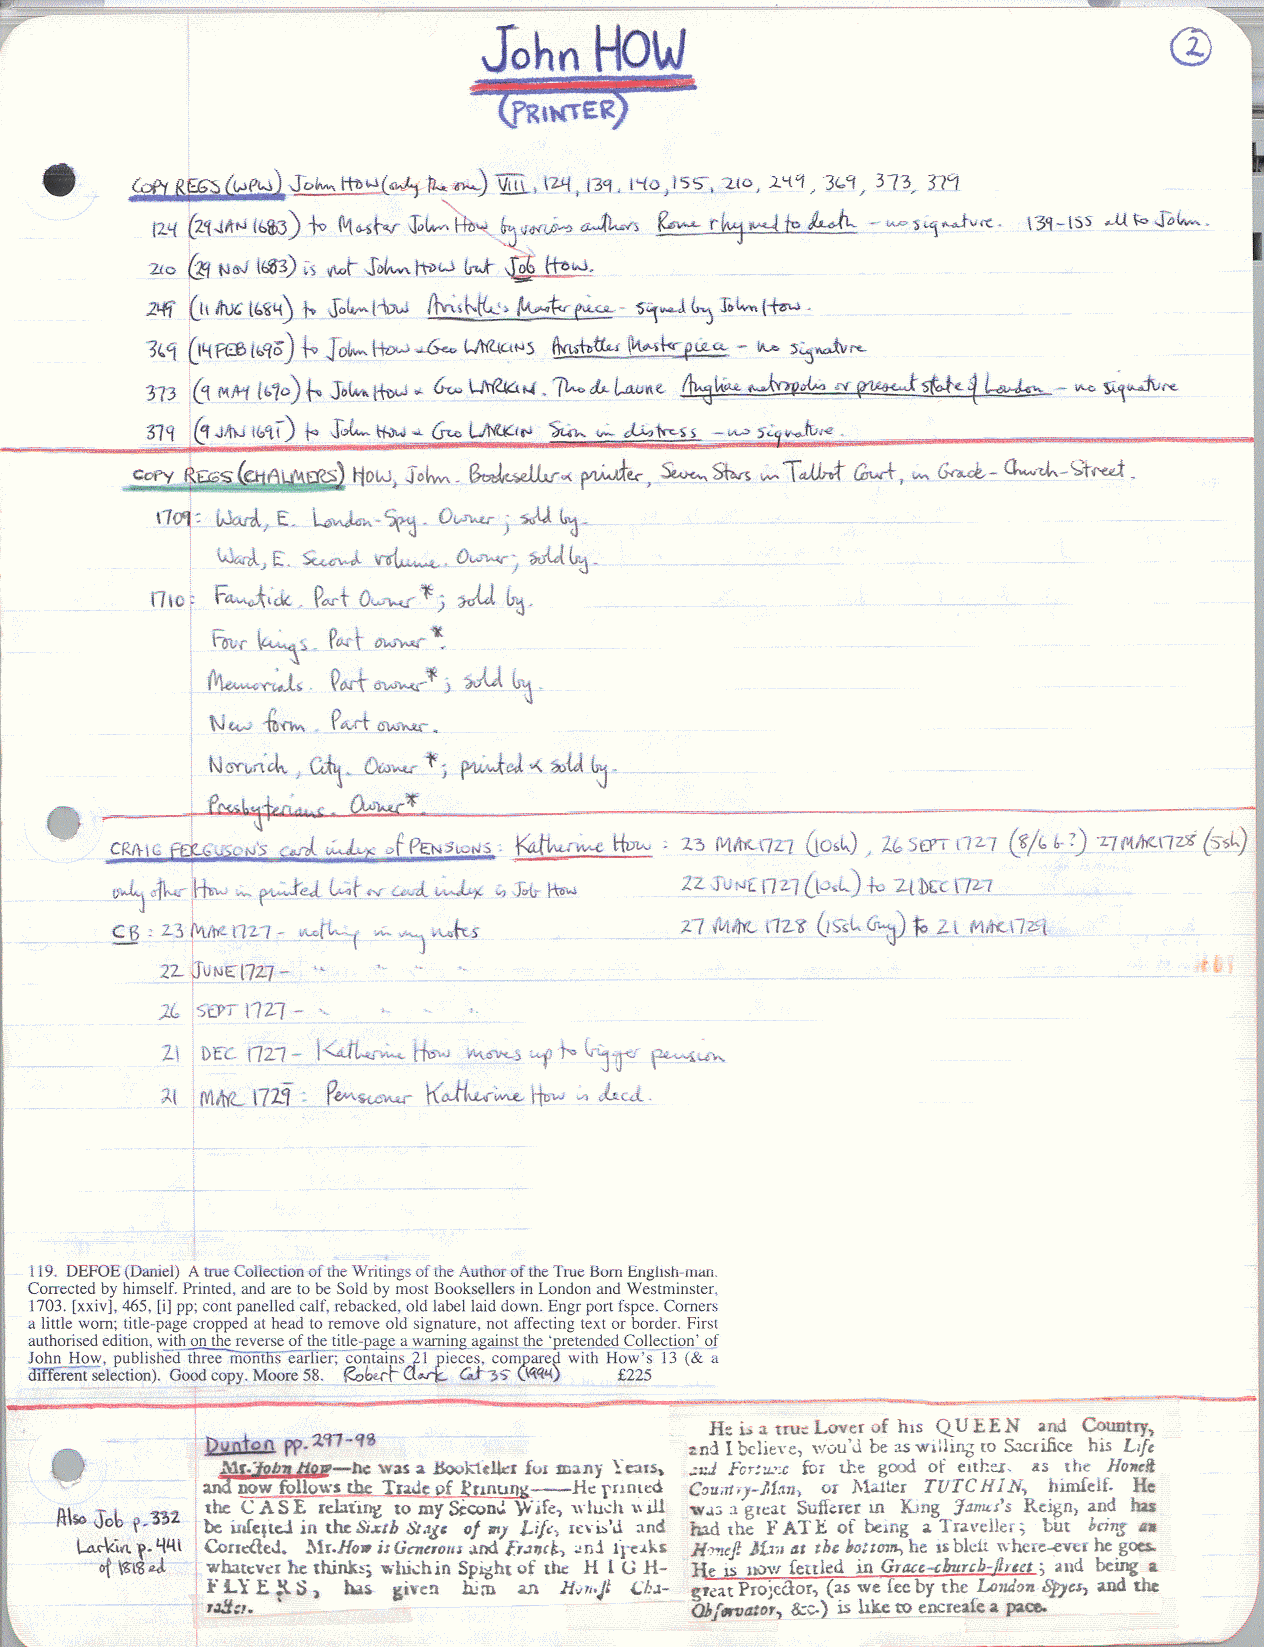 John HOW
2
(PRINTER)
COPY REGS (WPW) John How (only the one) VIII, 124, 139, 140, 155, 210, 249, 369, 373, 379
124 (29 JAN 1683) to Master John How by various authors Rome rhymed to death - no signature. 139-155 all to John.
210 (29 NOV 1683) is not John How but Job How.
249 (11 AUG 1684) to John How Aristotle's Masterpiece - signed by John How.
369 (14 FEB 1690) to John How & Geo LARKINS Aristotles Masterpiece - no signature
373 (9 MAY 1690) to John How & Geo LARKIN. Tho de Laune Angliae metropolis or present state of London - no signature
379 (9 JAN 1691) to John How & Geo LARKIN Sion in distress - no signature.
COPY REGS (CHALMERS) HOW, John. Bookseller & printer, Seven Stars in Talbot Court, in Grace-Church-Street.
1709: Ward, E. London-Spy. Owner; sold by.
Ward, E. Second volume. Owner; sold by.
1710: Fanatick. Part Owner*; sold by.
Four kings. Part owner*.
Memorials. Part owner*; sold by.
New form. Part owner.
Norwich, City. Owner*; printed & sold by.
Presbyterians. Owner*.
CRAIG FERGUSON'S card index of PENSIONS: Katherine How: 23 MAR 1727 (10sh), 26 SEPT 1727 (8/6 b?) 27 MAR 1728 (5sh)
only other How in printed list or card index is Job How 22 JUNE 1727 (10sh) to 21 DEC 1727
CB: 23 MAR 1727 - nothing in my notes 27 MAR 1728 (15sh Guy) to 21 MAR 1729
22 JUNE 1727 - " " " "
26 SEPT 1727 - " " " "
21 DEC 1727 - Katherine How moves up to bigger pension
21 MAR 1729: Pensioner Katherine How is decd.
119. DEFOE (Daniel) A true Collection of the Writings of the Author of the True Born English-man.
Corrected by himself. Printed, and are to be Sold by most Booksellers in London and Westminster,
1703. [xxiv], 465, [i] pp; cont panelled calf, rebacked, old label laid down. Engr port fspce. Corners
a little worn; title-page cropped at head to remove old signature, not affecting text or border. First
authorised edition, with on the reverse of the title-page a warning against the 'pretended Collection' of
John How, published three months earlier; contains 21 pieces, compared with How's 13 (& a
different selection). Good copy. Moore 58. Robert Clark Cat 35 (1994) £225
Dunton pp. 297-98
Mr. John How—he was a Bookſeller for many Years,
and now follows the Trade of Printing——He printed
the CASE relating to my Second Wife, which will
be inſerted in the Sixth Stage of my Life, revis'd and
Corrected. Mr. How is Generous and Franck, and ſpeaks
whatever he thinks; which in Spight of the HIGH-
FLYERS, has given him an Honeſt Cha-
racter.
Also Job p. 332
Larkin p. 441
of 1818 ed
He is a true Lover of his QUEEN and Country,
and I believe, wou'd be as willing to Sacrifice his Life
and Fortune for the good of either, as the Honeſt
Country-Man, or Maſter TUTCHIN, himſelf. He
was a great Sufferer in King James's Reign, and has
had the FATE of being a Traveller; but being an
Honeſt Man at the bottom, he is bleſt where-ever he goes.
He is now ſettled in Grace-church-ſtreet; and being a
great Projector, (as we ſee by the London Spyes, and the
Obſervator, &c.) is like to encreaſe a pace.